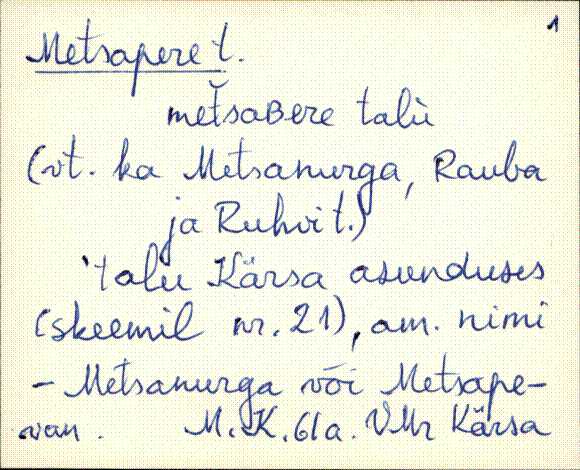 1
Metsapere t.
met̆saʙere talù
(vt. ka Metsanurga, Rauba
ja Ruhvi t.)
'talu Kärsa asunduses
(skeemil nr. 21), am. nimi
- Metsanurga või Metsape-
van. M. K. 61a. VMr Kärsa